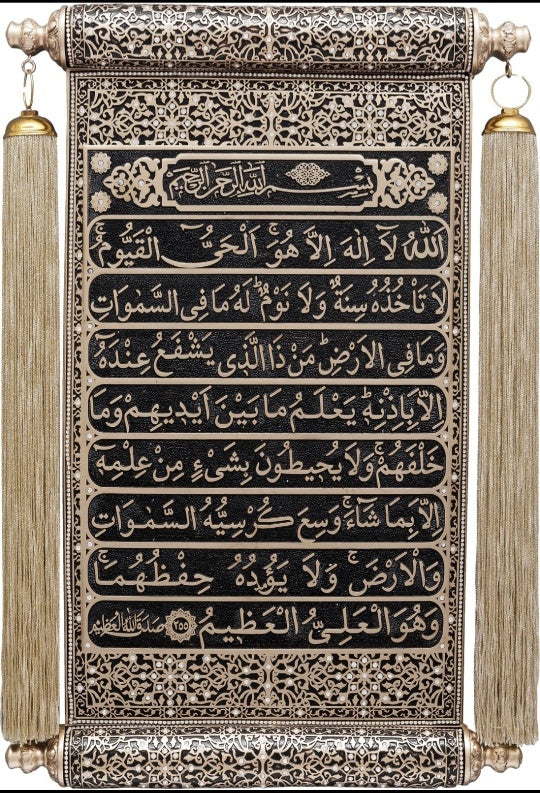 بِسْمِ اللهِ الرَّحْمٰنِ الرَّحِيمِ
اَللهُ لَٓا اِلٰهَ اِلَّا هُوَۚ اَلْحَىُّ الْقَيُّومُۚ
لَا تَأْخُذُهُ سِنَةٌ وَلَا نَوْمٌۜ لَهُ مَا فِى السَّمٰوَاتِ
وَمَا فِى الْاَرْضِۜ مَنْ ذَا الَّذِى يَشْفَعُ عِنْدَهُٓ
اِلَّا بِاِذْنِهِۜ يَعْلَمُ مَا بَيْنَ اَيْدِيهِمْ وَمَا
خَلْفَهُمْۚ وَلَا يُحِيطُونَ بِشَىْءٍ مِنْ عِلْمِهِٓ
اِلَّا بِمَا شَٓاءَۚ وَسِعَ كُرْسِيُّهُ السَّمٰوَاتِ
وَالْاَرْضَۚ وَلَا يَؤُ۫دُهُ حِفْظُهُمَاۚ
وَهُوَ الْعَلِىُّ الْعَظِيمُ ﴿٢٥٥﴾ صدق الله العظيم